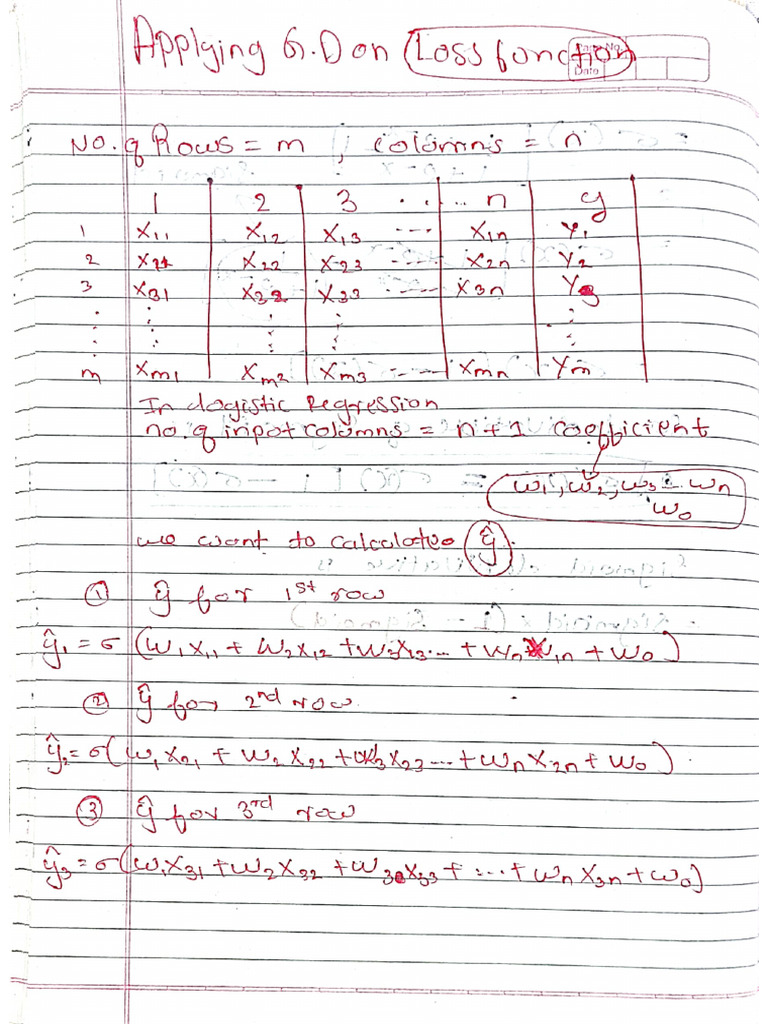 Applying G.D on Loss function
Page No.
Date
No. of Rows = m , columns = n
1 2 3 ..... n y
1 X11 X12 X13 ---- X1n Y1
2 X21 X22 X23 ---- X2n Y2
3 X31 X32 X33 ---- X3n Y3
⋮ ⋮ ⋮ ⋮ ⋮
m Xm1 Xm2 Xm3 ---- Xmn Ym
In logistic Regression
no. of inpot columns = n+1 coefficient
w1, w2, w3 - wn
w0
we want to calculate ŷ
① ŷ for 1st row
ŷ1 = σ (w1x11 + w2x12 + w3x13... + wnx1n + w0)
② ŷ for 2nd row
ŷ2 = σ(w1x21 + w2x22 + w3x23 ... + wnx2n + w0).
③ ŷ for 3rd row
ŷ3 = σ(w1x31 + w2x32 + w3x33 + ... + wnx3n + w0)